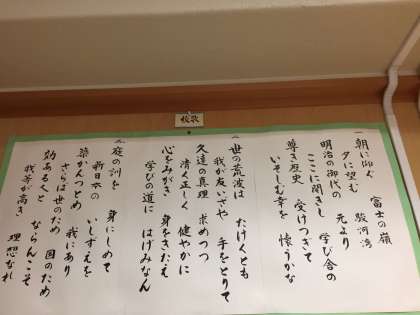 校歌
一 朝に仰ぐ 富士の嶺
夕に望む 駿河湾
明治の御代の 元より
ここに開きし 学び舎の
尊き歴史 受けつぎて
いそしむ幸を 懐うかな
二 世の荒波は たけくとも
我が友いざや 手をとりて
久遠の真理 求めつつ
清く正しく 健やかに
心をみがき 身をきたえ
学びの道に はげみなん
三 庭の訓を 身にしめて
新日本の いしずえを
築かんつとめ 我にあり
さらば世のため 国のため
効ある人と ならんこそ
我等が高き 理想なれ